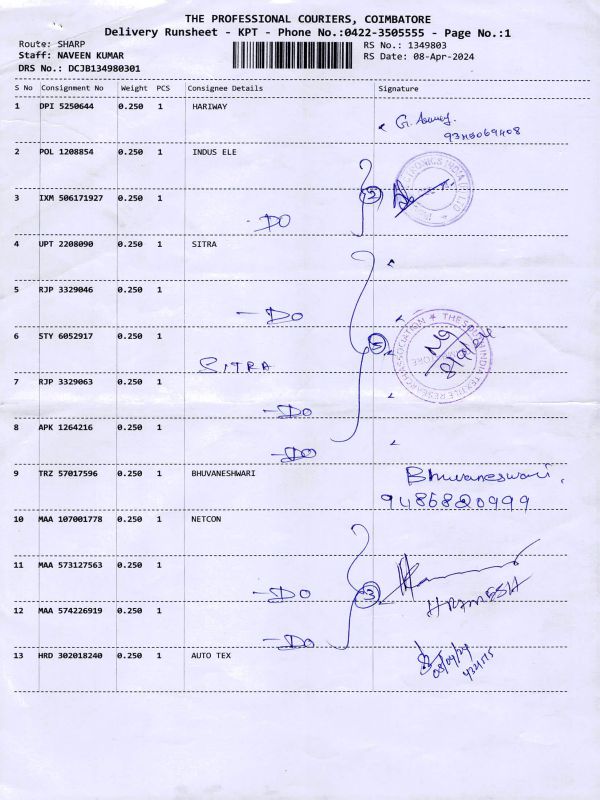 THE PROFESSIONAL COURIERS, COIMBATORE
Delivery Runsheet - KPT - Phone No.:0422-3505555 - Page No.:1
Route: SHARP
Staff: NAVEEN KUMAR
DRS No.: DCJB134980301
RS No.: 1349803
RS Date: 08-Apr-2024
S No Consignment No Weight PCS Consignee Details Signature
1 DPI 5250644 0.250 1 HARIWAY
G.
2 POL 1208854 0.250 1 INDUS ELE
2
3 IXM 506171927 0.250 1
-DO
4 UPT 2208090 0.250 1 SITRA
5 RJP 3329046 0.250 1
-DO
5
THE SOUTH INDIA TEXTILE RESEARCH ASSOCIATION
6 STY 6052917 0.250 1
SITRA
7 RJP 3329063 0.250 1
-DO
8 APK 1264216 0.250 1
-DO
9 TRZ 57017596 0.250 1 BHUVANESHWARI
Bhuvaneswari.
9486820999
10 MAA 107001778 0.250 1 NETCON
11 MAA 573127563 0.250 1
-DO
3
12 MAA 574226919 0.250 1
-DO
13 HRD 302018240 0.250 1 AUTO TEX
08/04/24